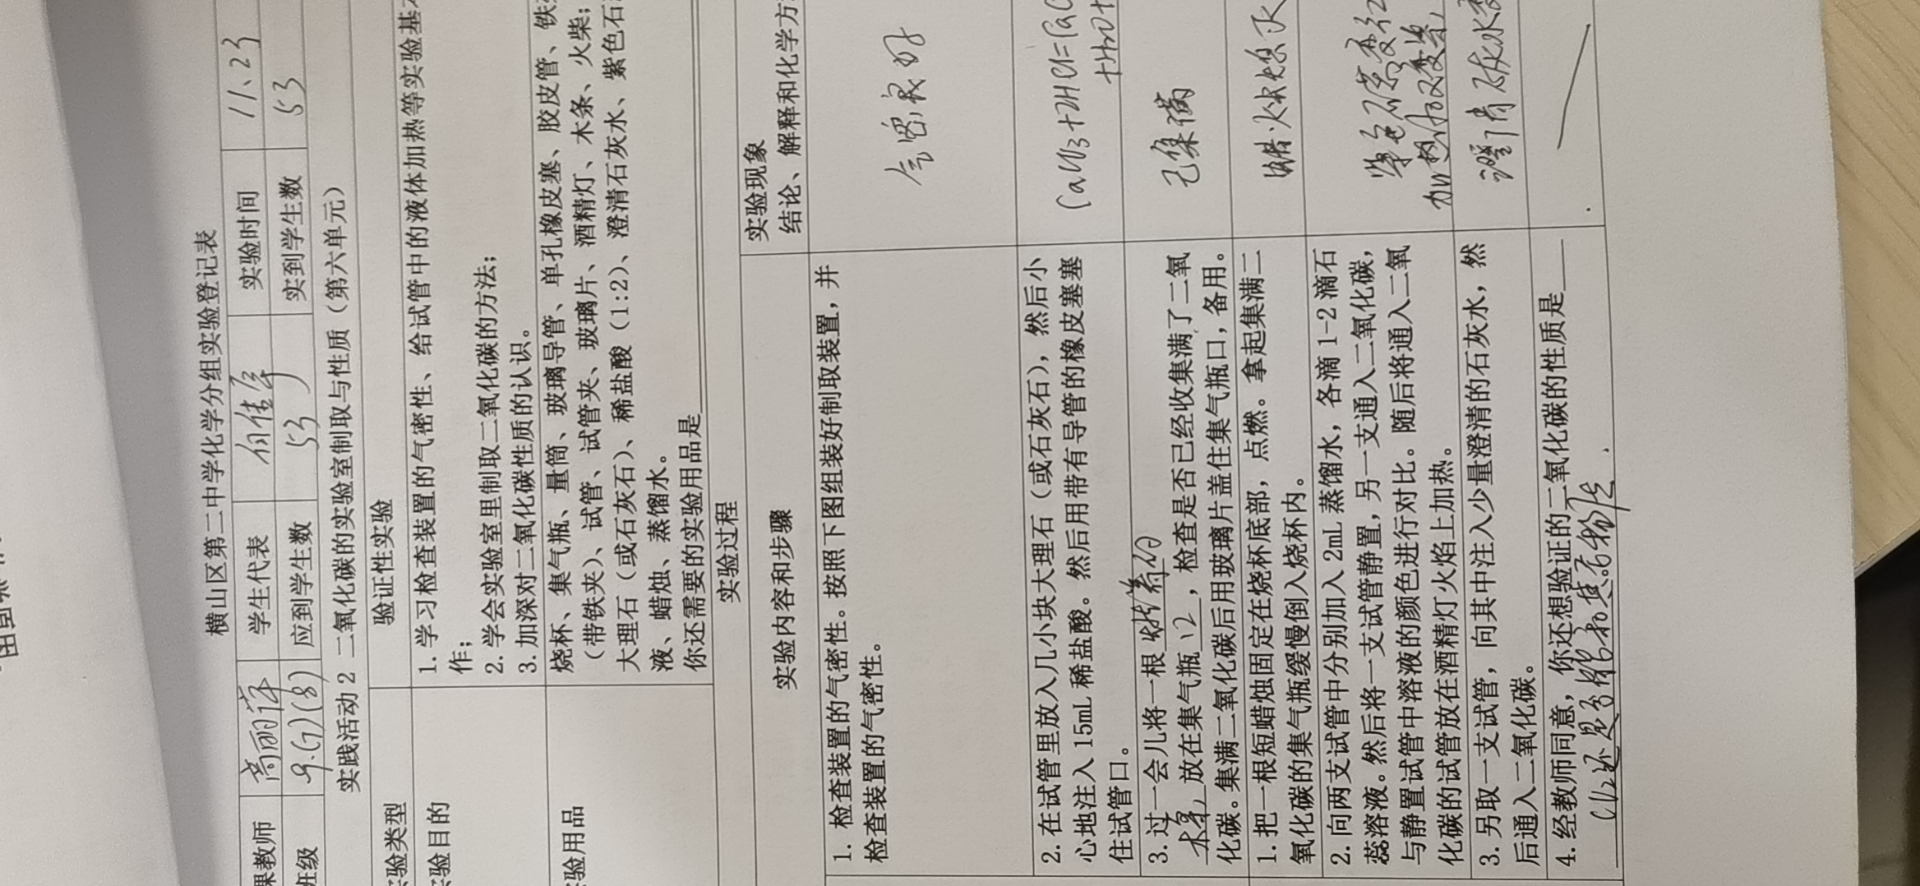 横山区第二中学化学分组实验登记表
课教师 高丽萍 学生代表 实验时间 11.23
班级 9.(7)(8) 应到学生数 53 实到学生数 53
实践活动2 二氧化碳的实验室制取与性质（第六单元）
实验类型 验证性实验
实验目的
1. 学习检查装置的气密性、给试管中的液体加热等实验基
作；
2. 学会实验室里制取二氧化碳的方法；
3. 加深对二氧化碳性质的认识。
实验用品
烧杯、集气瓶、量筒、玻璃导管、单孔橡皮塞、胶皮管、铁
（带铁夹）、试管、试管夹、玻璃片、酒精灯、木条、火柴；
大理石（或石灰石）、稀盐酸（1:2）、澄清石灰水、紫色石
液、蜡烛、蒸馏水。
你还需要的实验用品是
实验过程
实验内容和步骤
实验现象
结论、解释和化学方
1. 检查装置的气密性。按照下图组装好制取装置，并
检查装置的气密性。
气密良好
2. 在试管里放入几小块大理石（或石灰石），然后小
心地注入 15mL 稀盐酸。然后用带有导管的橡皮塞塞
住试管口。
CaCO3+2HCl=CaC
+H2O+
3. 过一会儿将一根 燃着的
木条，放在集气瓶 口，检查是否已经收集满了二氧
化碳。集满二氧化碳后用玻璃片盖住集气瓶口，备用。
已集满
1. 把一根短蜡烛固定在烧杯底部，点燃。拿起集满二
氧化碳的集气瓶缓慢倒入烧杯内。
蜡烛熄灭
2. 向两支试管中分别加入 2mL 蒸馏水，各滴 1-2 滴石
蕊溶液。然后将一支试管静置，另一支通入二氧化碳，
与静置试管中溶液的颜色进行对比。随后将通入二氧
化碳的试管放在酒精灯火焰上加热。
紫色石蕊变红
加热后变
3. 另取一支试管，向其中注入少量澄清的石灰水，然
后通入二氧化碳。
澄清石灰水变
4. 经教师同意，你还想验证的二氧化碳的性质是
CO2还是